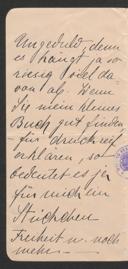 Ungeduld, denn
es hängt ja so
riesig viel da
von ab. Wenn
Sie mein kleines
Buch gut finden
für druckreif
erklären, so
bedeutet es ja
für mich ein
Stückchen
Freiheit u. noch
mehr.